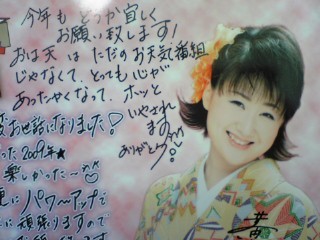 今年も どうか宜しく
お願い致します!
おは天は ただのお天気番組
じゃなくて、とっても心が
あったかくなって、ホッと
いやされ
ます
ありがとう
お世話になりました!
った2009年★
楽しかった〜
にパワーアップで
に頑張りますので